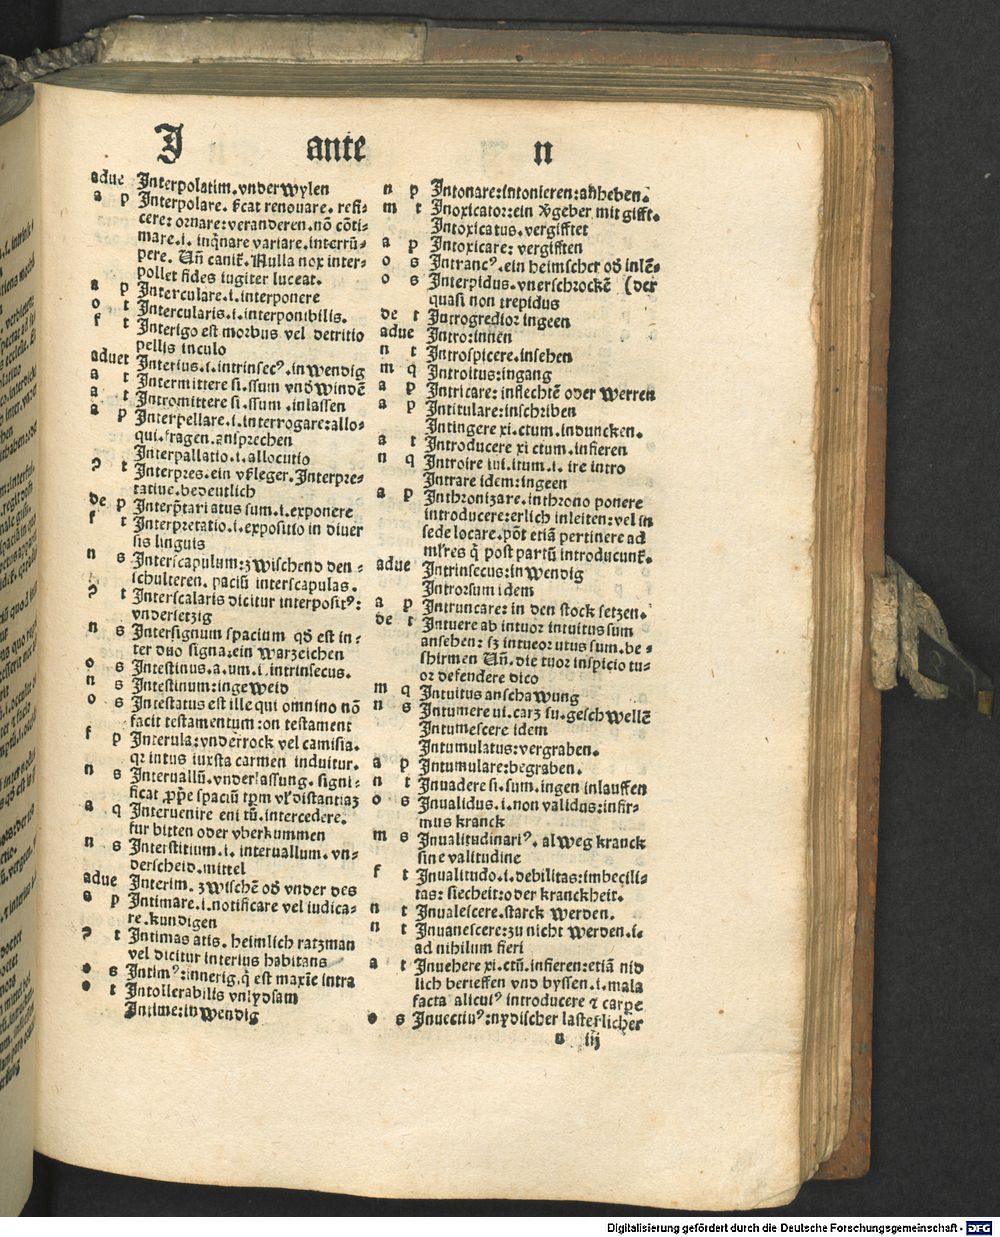 J ante n
adue Interpolatim.vnderwylen
a p Interpolare. fcat renouare. refi-
cere: ornare: veranderen. nõ cõti-
mare.i. inq̃nare variare.interrũ-
pere. Uñ canit. Nulla nox inter-
pollet fides iugiter luceat.
a p Interculare.i.interponere
o t Intercularis.i.interponibilis.
f t Interigo est morbus vel detritio
pellis in culo
aduet Interius.i.intrinsecꝰ.inwendig
a t Intermittere si.ssum vnd winden
a t Intromittere si.ssum .inlassen
a p Interpellare.i.interrogare:allo-
qui.fragen.ansprechen
Interpallatio.i.allocutio
? t Interpres.ein vßleger.Interpre-
tatiue.bedeutlich
de p Interp̃tari atus sum.i.exponere
f t Interpretatio.i.expositio in diuer
sis linguis
n s Interscapulum:zwischend den-
schulteren. paciũ interscapulas.
? t Interscalaris dicitur interpositꝰ:
vndersetzig
n s Intersignum spacium qd est in-
ter duo signa:ein warzeichen
o s Intestinus.a.um.i.intrinsecus.
n s Intestinum:ingeweid
o s Intestatus est ille qui omnino nõ
facit testamentum:on testament
f p Interula:vnderrock vel camisia.
qr intus iuxta carmen induitur.
n s Interuallũ.vnderlassung. signi-
ficat ,p̱p̃e spaciũ tp̃m vl distantiaz
a q Interuenire eni tũ.intercedere.
fur bitten oder vberkummen
n s Interstitium.i. interuallum. vn-
derscheid.mittel
adue Interim. zwischẽ od vnder des
a p Intimare.i.notificare vel iudica-
re.kundigen
? t Intimas atis. heimlich ratzman
vel dicitur interius habitans
o s Intimꝰ:innerig.q̃ est maxĩe intra
o t Intollerabilis vnlydsam
Intime:inwendig
n p Intonare:intonieren:anheben.
m t Inoxicator:ein vgeber mit gifft.
Intoxicatus.vergifftet
a p Intoxicare: vergifften
o s Intrancꝰ.ein heimscher od inlẽ-
o s Interpidus.vnerschrockẽ (der
quasi non trepidus
de t Introgredior ingeen
adue Intro:innen
n t Introspicere.insehen
m q Introitus:ingang
a p Intricare: inflechtẽ oder werren
a p Intitulare:inschriben
Intingere xi.ctum.induncken.
a t Introducere xi ctum.infieren
n q Introire iui.itum.i. ire intro
Intrare idem:ingeen
a p Inthronizare.in throno ponere
introducere:erlich inleiten:vel in
sede locare.põt etiã pertinere ad
mr̃es q̃ post partũ introducunt.
adue Intrinsecus:inwendig
Introrsum idem
a p Intruncare: in den stock setzen.
de t Intuere ab intuor intuitus sum
ansehen: sz intueor utus sum.be-
shirmen Uñ.die tuor inspicio tu-
or defendere dico
m q Intuitus anschawung
n s Intumere ui.carz su.geschwellẽ
Intumescere idem
Intumulatus:vergraben.
a p Intumulare:begraben.
n t Inuadere si.sum.ingen inlauffen
o s Inualidus.i.non validus:infir-
mus kranck
m s Inualitudinariꝰ. alweg kranck
sine valitudine
f t Inualitudo.i.debilitas:imbecili-
tas: siecheit:oder kranckheit.
n t Inualescere.starck werden.
n t Inuanescere:zu nicht werden.i.
ad nihilum fieri
a t Inuehere xi.ctũ.infieren:etiã nid
lich bertieffen vnd byssen.i.mala
facta alicuiꝰ introducere ⁊ carpe
o s Inuectiuꝰ:nydischer lasterlicher
n iij
Digitalisierung gefördert durch die Deutsche Forschungsgemeinschaft - DFG